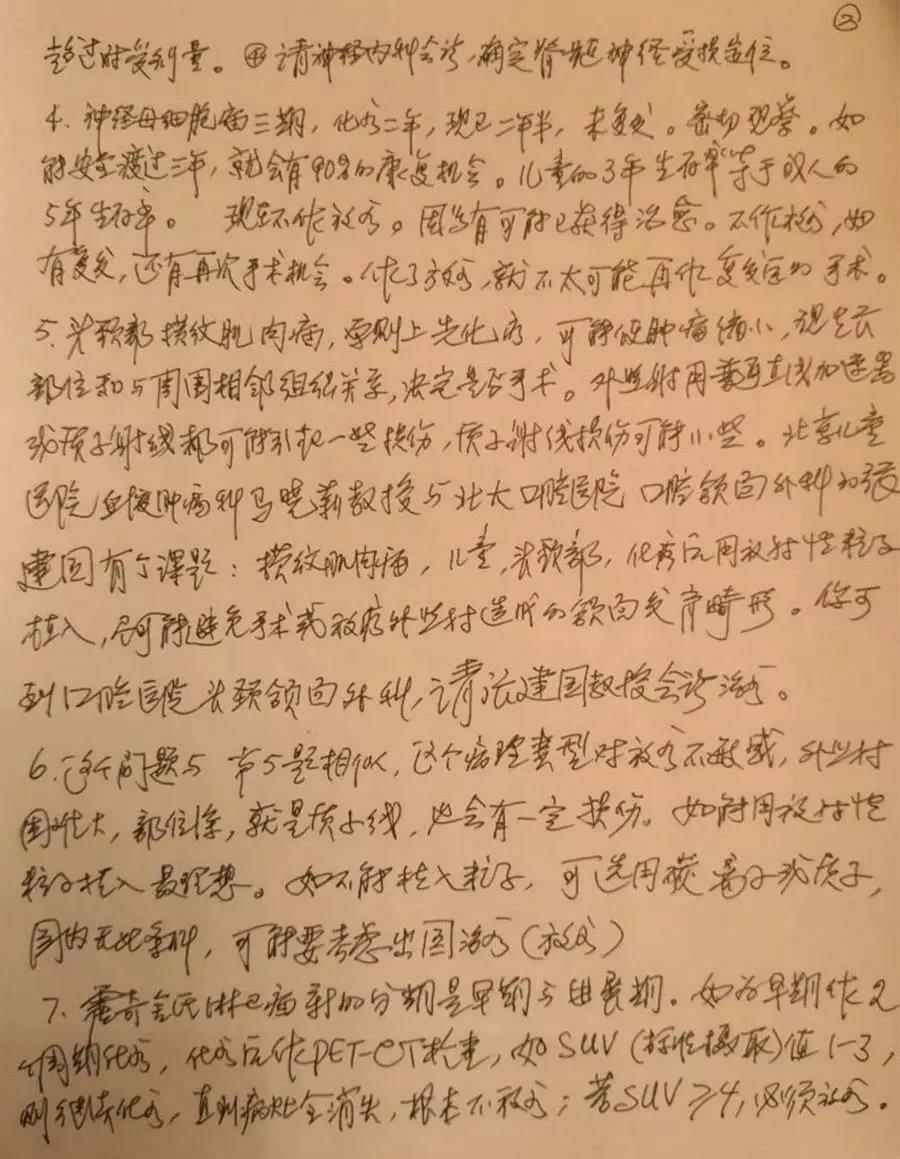 ②
超过耐受剂量。④请神经内科会诊,确定脊髓神经受损定位。
4、神经母细胞瘤三期,化疗二年,现已二年半,未复发。密切观察。如
能安全渡过三年,就会有90%的康复机会。儿童的3年生存率等于成人的
5年生存率。 现在不作放疗。因为有可能已获得治愈。不作放疗,如
有复发,还有再次手术机会。作了放疗,就不太可能再作复发后的手术。
5、头颈部横纹肌肉瘤,原则上先化疗,可能使肿瘤缩小,视其
部位和与周围相邻组织关系,决定是否手术。外照射用普通直线加速器
或质子射线都可能引起一些损伤,质子射线损伤可能小些。北京儿童
医院血液肿瘤科马晓莉教授与北大口腔医院口腔颌面外科的张
建国有个课题:横纹肌肉瘤,儿童,头颈部,化疗后用放射性粒子
植入,尽可能避免手术或放疗外照射造成的颌面发育畸形。你可
到口腔医院头颈颌面外科,请张建国教授会诊治疗。
6、这个问题与第5题相似,这个病理类型对放疗不敏感,外照射
困难大,部位深,就是质子线,也会有一定损伤。如能用放射性
粒子植入最理想。如不能植入粒子,可选用碳离子或质子,
国内无此条件,可能要考虑出国治疗(放疗)
7、霍奇金氏淋巴瘤新的分期是早期与进展期。如为早期作2
个周期化疗,化疗后作PET-CT检查,如SUV(标准摄取)值1-3,
则继续化疗,直到病灶全消失,根本不放疗;若SUV≥4,必须放疗。